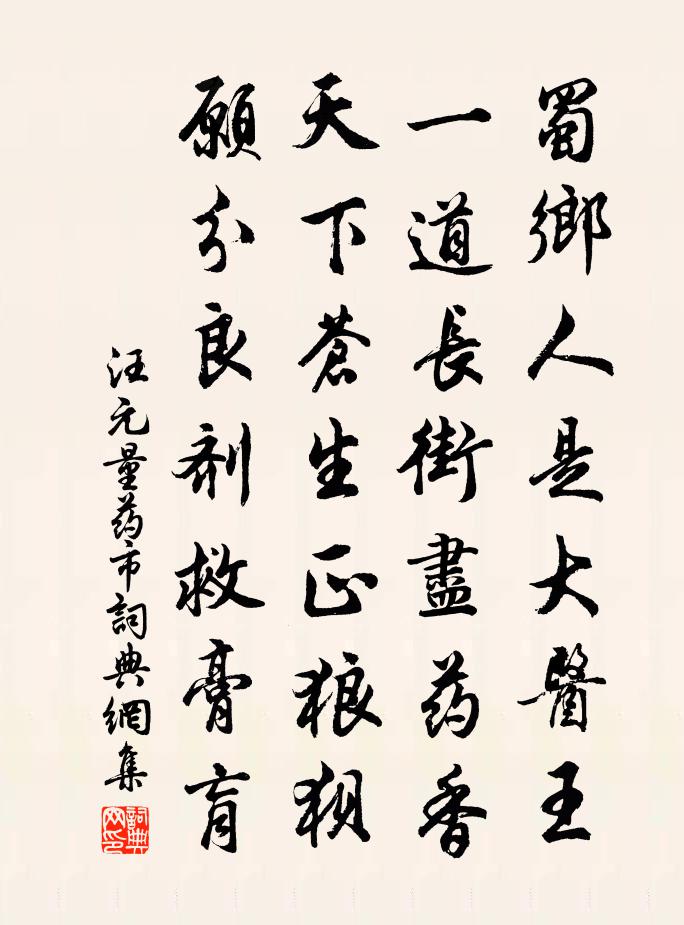 蜀鄉人是大醫王
一道長街盡药香
天下蒼生正狼狽
願分良剤救膏肓
汪元量药市詞典網集
詞典網印